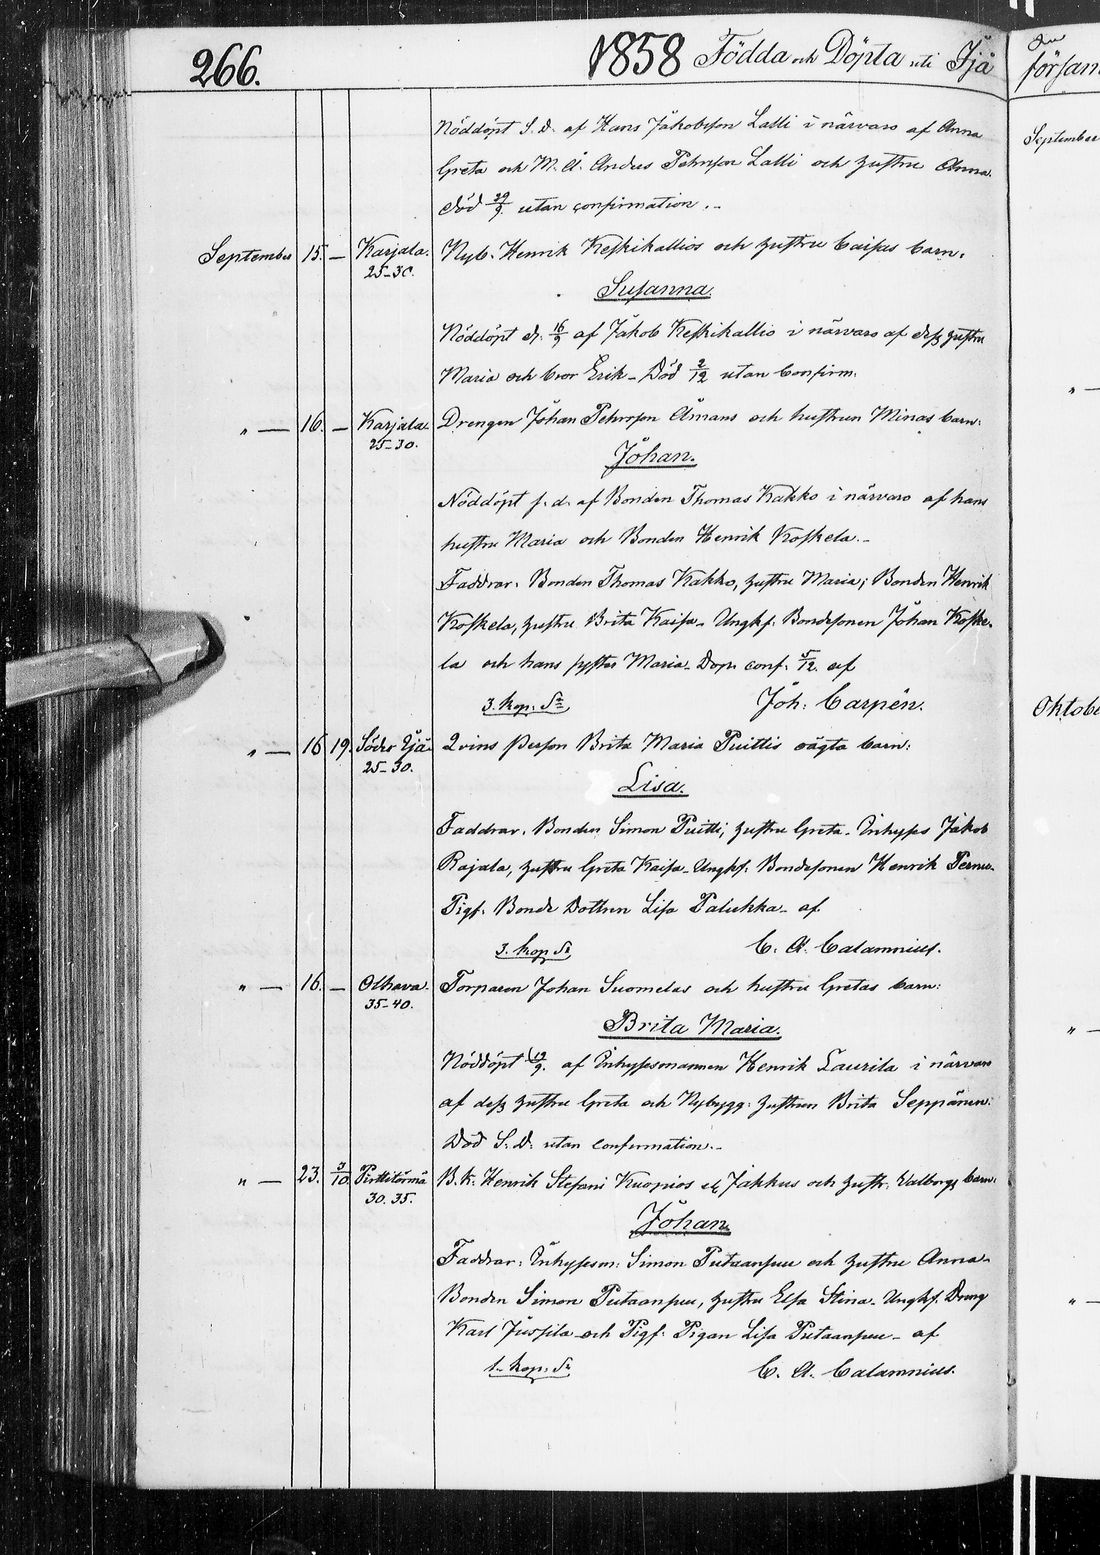 266.
1858 Födda och Döpta uti Ijå
Nöddöpt S. d. af Hans Jakobsson Lalli i närvaro af Anna
Greta och M. A. Anders Pehrsson Lalli och hustru Anna.
död 29/9 utan confirmation. -
September 15. — Karjala. Nyb. Henrik Keskikallios och hustru Caisas barn:
25-30.
Susanna.
Nöddöpt d. 16/9 af Jakob Keskikallio i närvaro af dess hustru
Maria och bror Erik - Död 2/12 utan Confirm:
" — 16. — Karjala. Drengen Johan Pehrsson Åmans och hustrun Minas barn:
25-30.
Johan.
Nöddöpt s. d. af Bonden Thomas Kakko i närvaro af hans
hustru Maria och Bonden Henrik Koskela. -
Faddrar: Bonden Thomas Kakko, hustru Maria; Bonden Henrik
Koskela, hustru Brita Kaisa - Ungk: Bondesonen Johan Koske-
la och hans syster Maria - Dop. conf. 5/12 af
3. kop: Sr. Joh: Carpén.
" — 16 19. Söder Ijå Qvins person Brita Maria Puittis oägta barn:
25-30.
Lisa.
Faddrar: Bonden Simon Puitti, hustru Greta - Inhyses Jakob
Rajala, hustru Greta Kaisa - Ungk: Bondesonen Henrik Pernu-
Pig: Bonde Dottren Lisa Palukka - af
3. kop Sr C. A. Calamnius.
" — 16. — Olhava. Torparen Johan Suomelas och hustru Gretas barn:
35-40.
Brita Maria.
Nöddöpt 19/9. af Inhysesmannen Henrik Laurila i närvaro
af dess hustru Greta och Nybygg: hustrun Brita Seppänen.
Död S. D. utan confirmation. -
" — 23. 3/10 Pirttitörmä B. K. Henrik Stefani Kuopios el. Jakkus och hustr: Valborgs barn:
30. 35.
Johan
Faddrar: Inhysesm: Simon Putaanpuu och hustru Anna -
Bonden Simon Putaanpuu, hustru Elsa Stina - Ungk. Dreng
Karl Jussila och Pig: Pigan Lisa Putaanpuu - af
1. kop: Sr C. A. Calamnius.
den
försam
September
" —
Oktobe
" —
" —